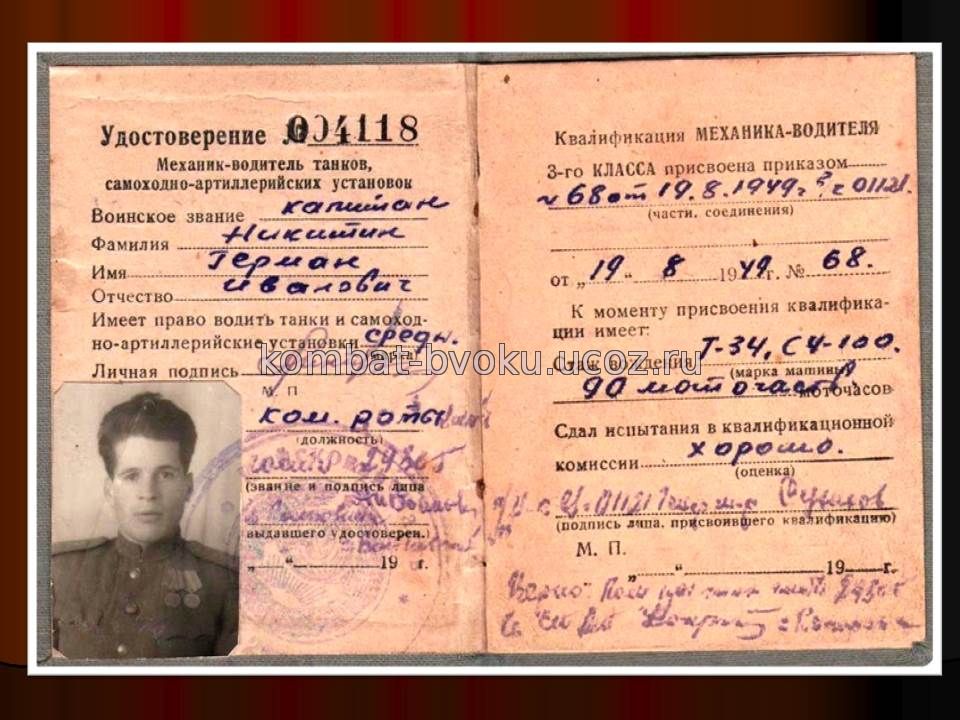 Удостоверение № 004118
Механик-водитель танков,
самоходно-артиллерийских установок
Воинское звание капитан
Фамилия Никитин
Имя Герман
Отчество Иванович
Имеет право водить танки и самоход-
но-артиллерийские установки средн.
Личная подпись
М. П
ком. роты
(должность)
(звание и подпись лица
выдавшего удостоверен.)
„ “ 19 г.
Квалификация МЕХАНИКА-ВОДИТЕЛЯ
3-го КЛАССА присвоена приказом
ч 68 от 19.8.1949г. 01121.
(части, соединения)
от „19“ 8 1949г. № 68.
К моменту присвоения квалифика-
ции имеет:
Стаж вождения Т-34, СУ-100.
(марка машины)
90 моточасов, моточасов
Сдал испытания в квалификационной
комиссии хорошо.
(оценка)
(подпись лица, присвоившего квалификацию)
М. П.
„ “ 19 г.
Верно:
kombat-bvoku.ucoz.ru